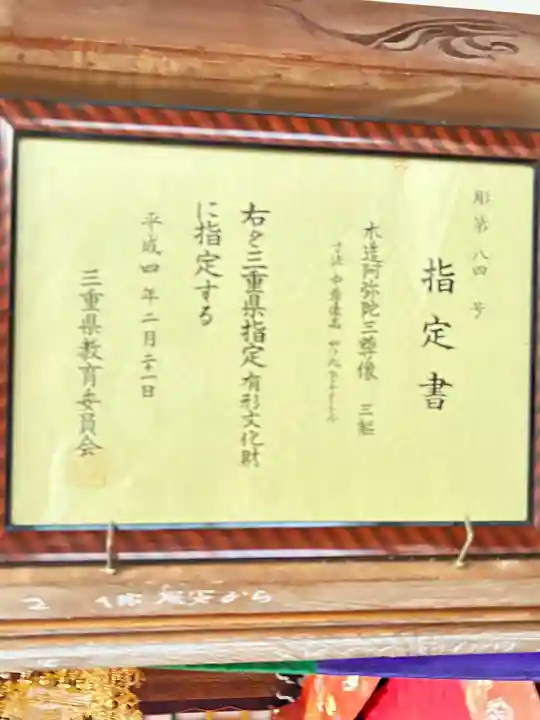 彫第八四号
指定書
木造阿弥陀三尊像 三躯
右を三重県指定有形文化財
に指定する
平成四年二月二十一日
三重県教育委員会